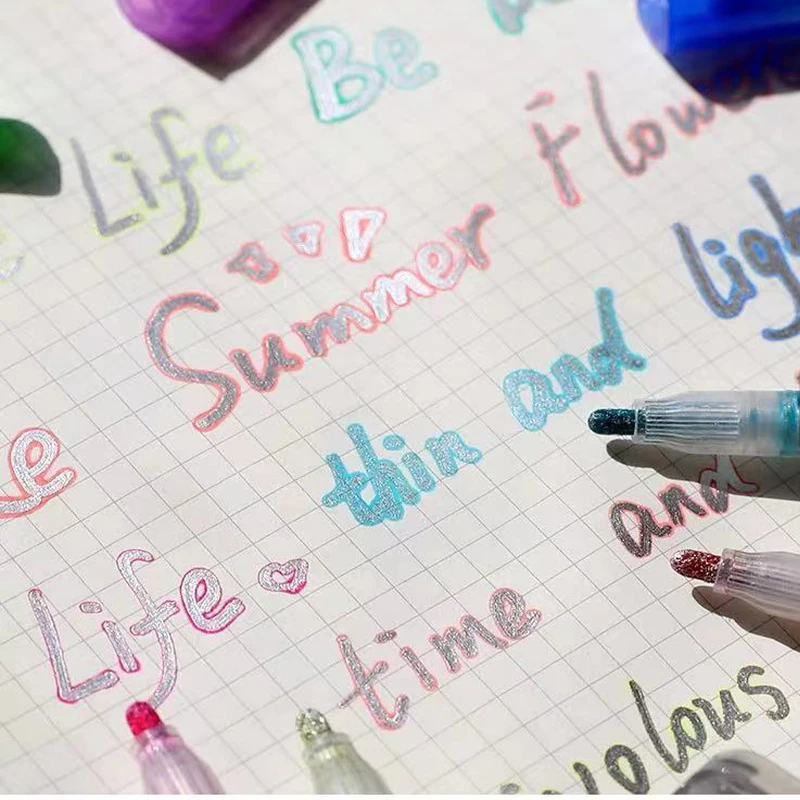 e Life Be
Summer Flowe
e thin and ligh
Life time and
ivolous